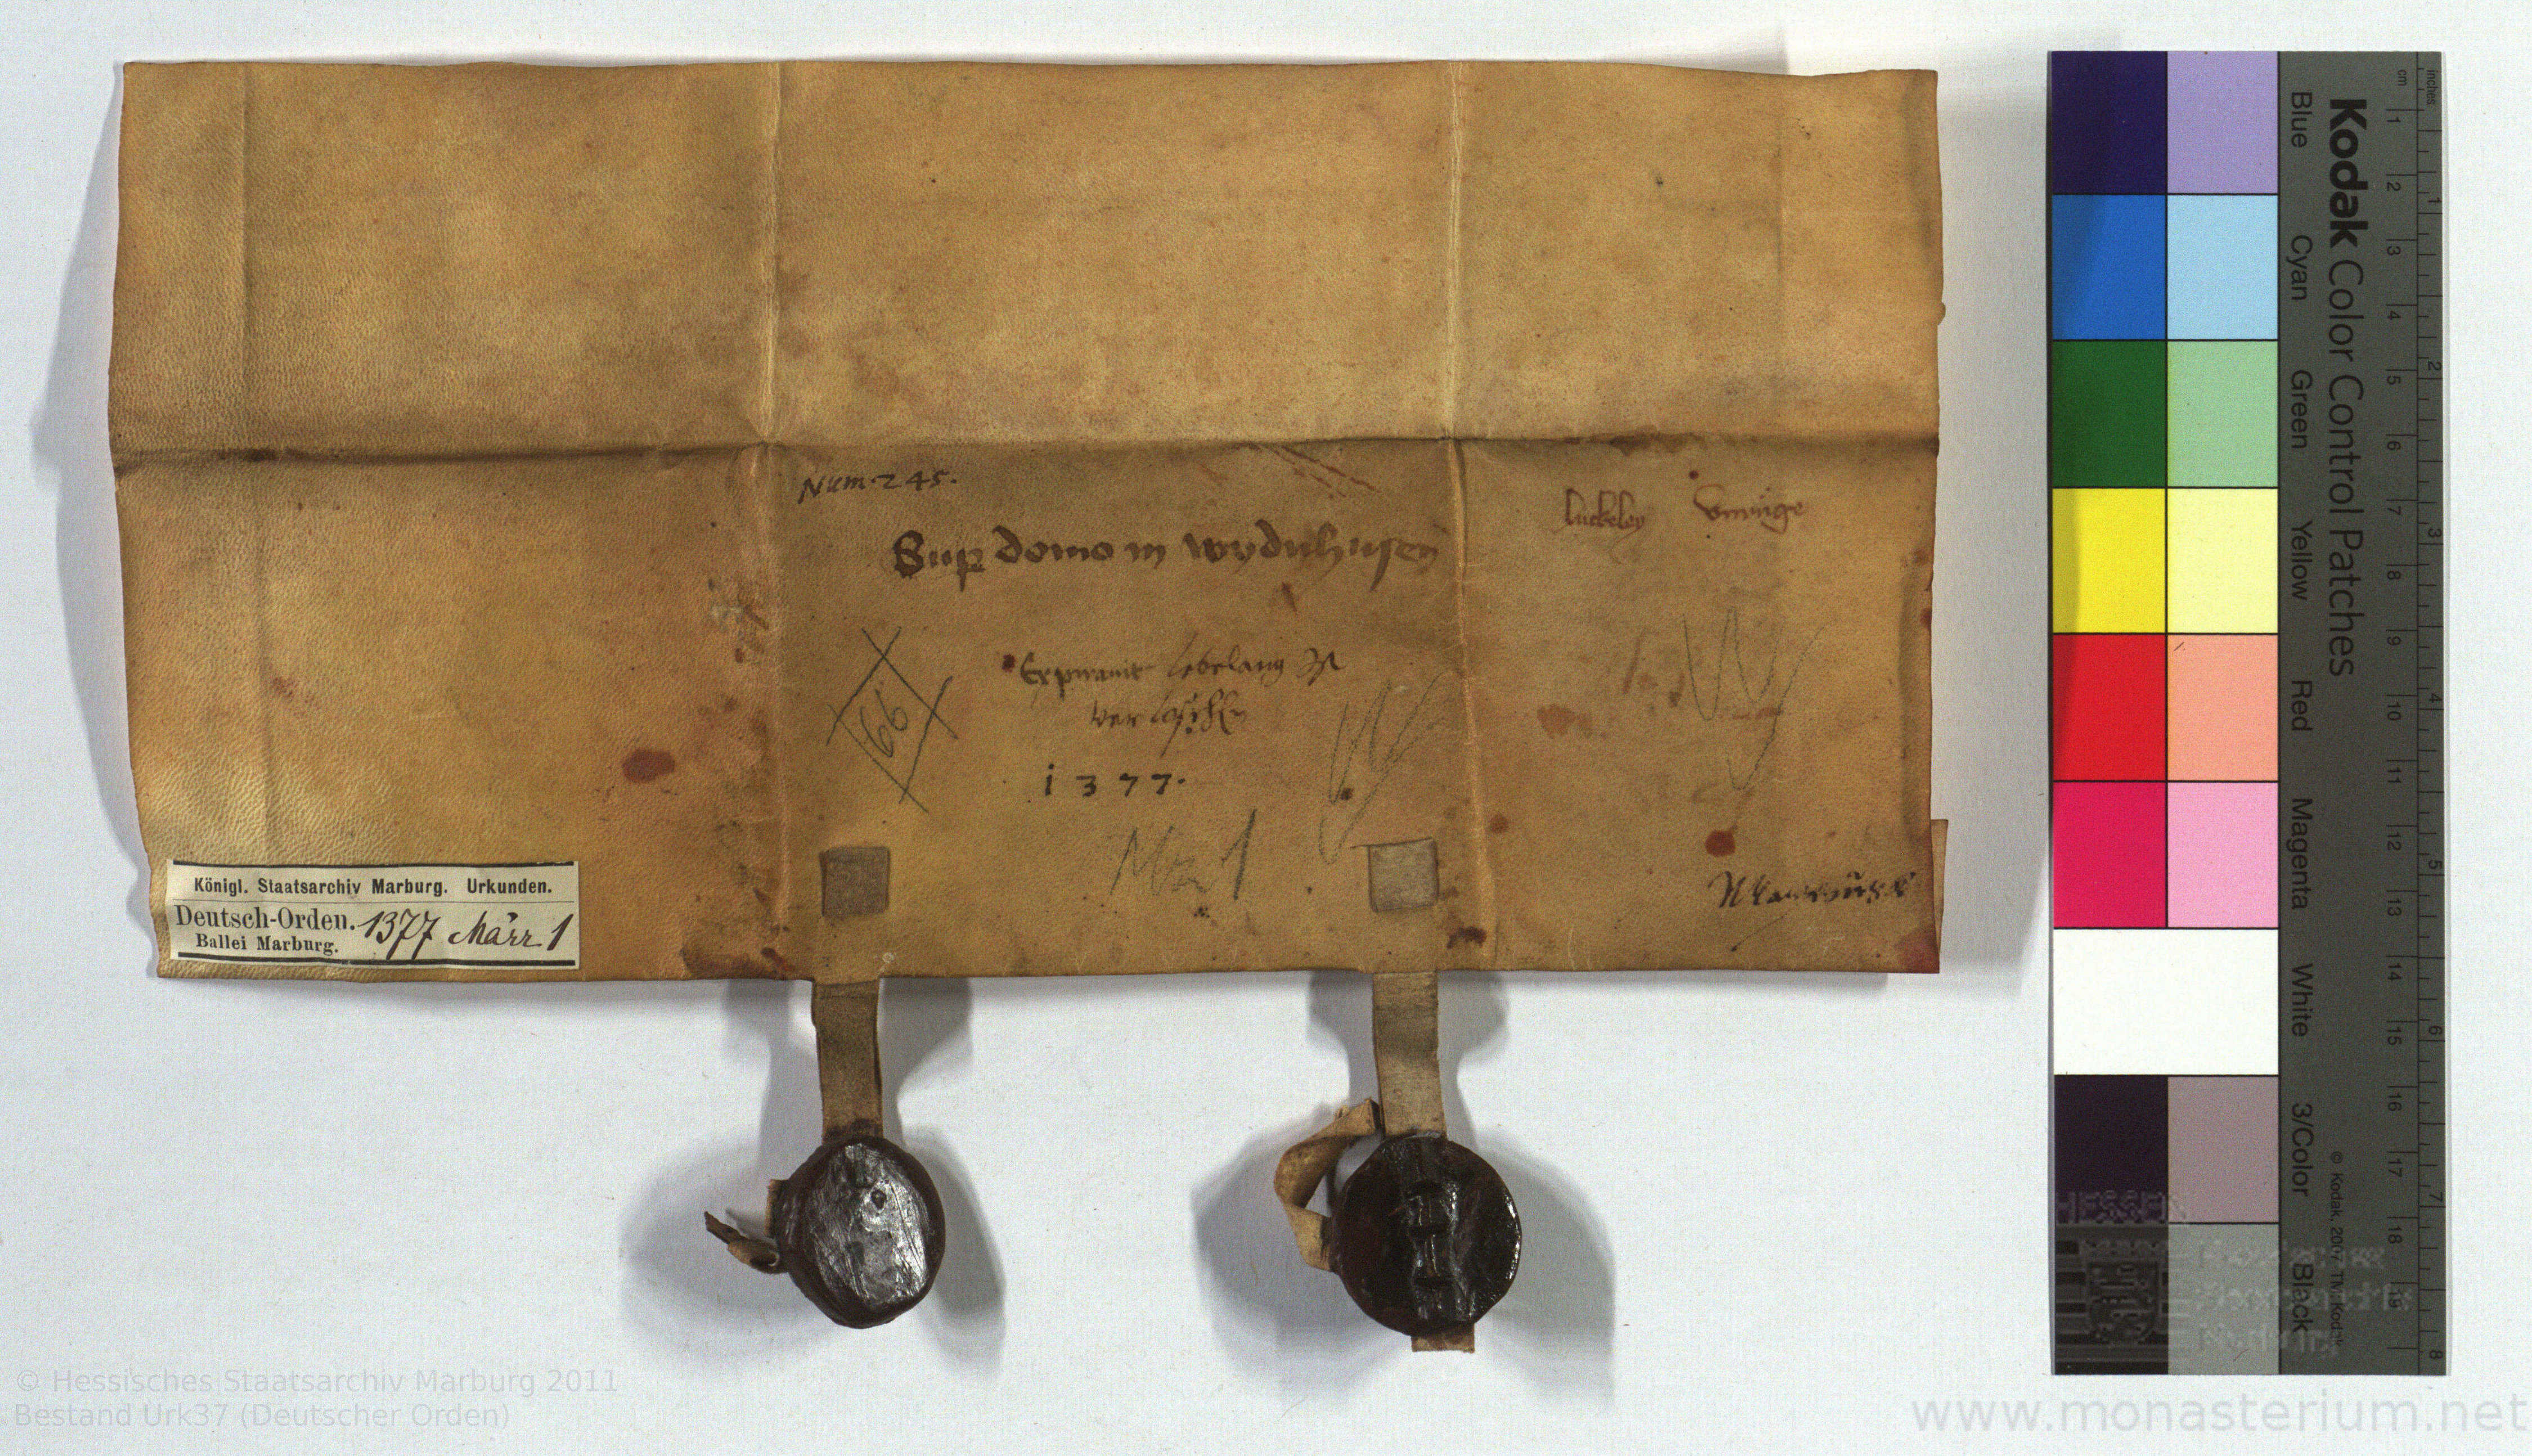 Num. 245.
luckeley
Sup domo in wydinhusen
lebelang
66
1377.
Mrz 1
Königl. Staatsarchiv Marburg. Urkunden.
Deutsch-Orden. 1377 März 1
Ballei Marburg.
© Hessisches Staatsarchiv Marburg 2011
Bestand Urk37 (Deutscher Orden)
www.monasterium.net
Kodak Color Control Patches
© Kodak, 2007 TM: Kodak
Blue Cyan Green Yellow Red Magenta White 3/Color Black
cm 1 2 3 4 5 6 7 8 9 10 11 12 13 14 15 16 17 18 19
inches 1 2 3 4 5 6 7 8
HESSEN
Hessisches
Staatsarchiv
Marburg